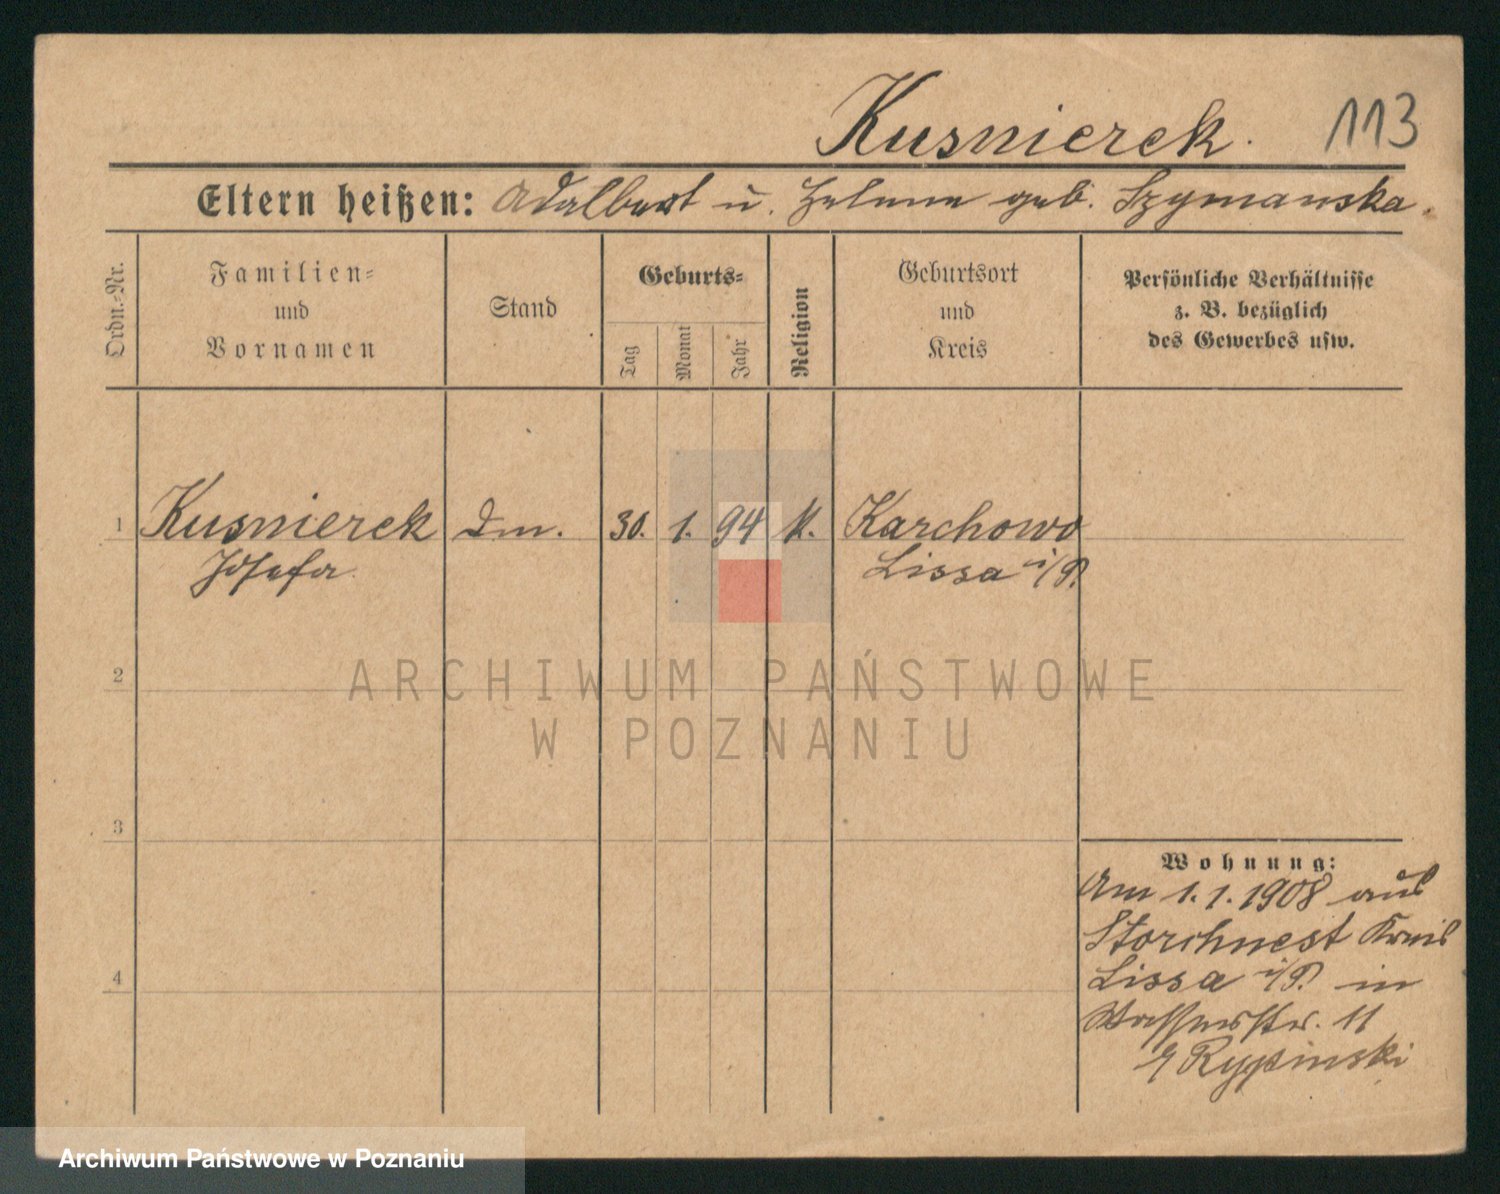 Kusnierek. 113
Eltern heißen: Adalbert u. Helene geb. Szymanska.
Ordn.-Nr.
Familien-
und
Vornamen
Stand
Geburts-
Tag
Monat
Jahr
Religion
Geburtsort
und
Kreis
Persönliche Verhältnisse
z. B. bezüglich
des Gewerbes usw.
1 Kusnierek Dm. 30. 1. 94 k. Karchowo
Josefa Lissa i/P.
2
ARCHIWUM PAŃSTWOWE
W POZNANIU
3
Wohnung:
Am 1.1.1908 aus
Storchnest Kreis
4 Lissa i/P. in
Wasserstr. 11
Rypinski
Archiwum Państwowe w Poznaniu